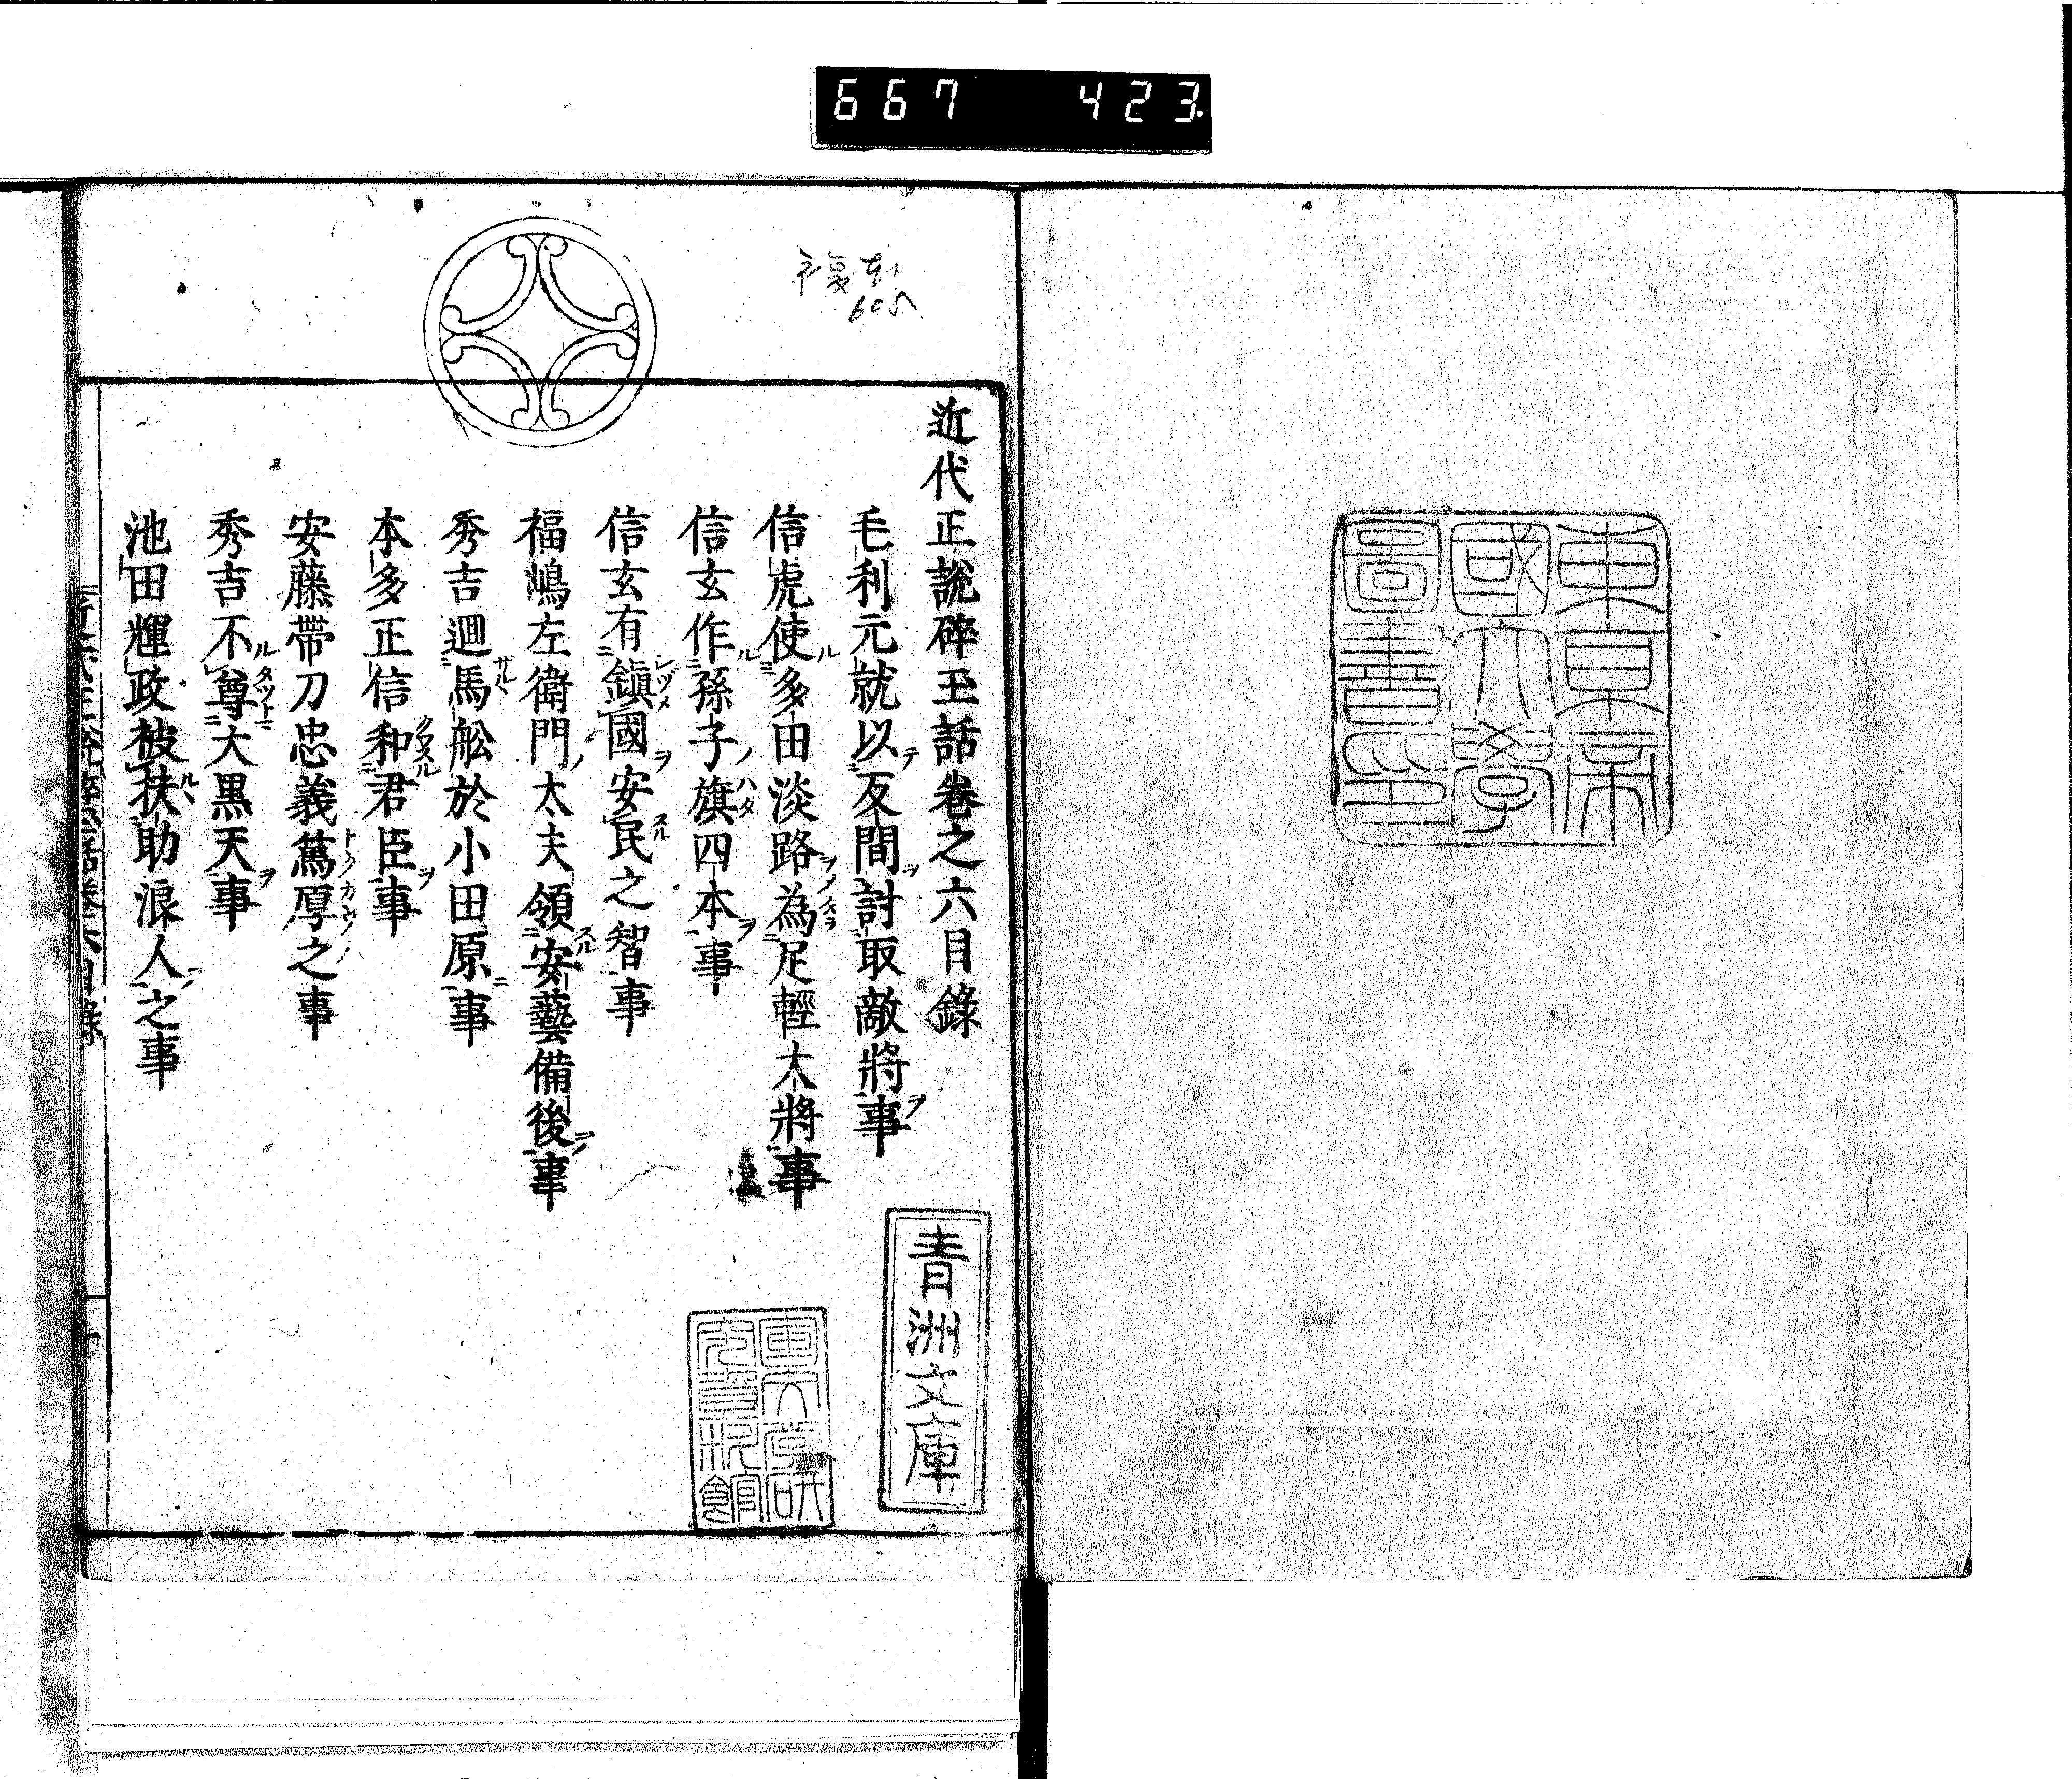 667 423
東京帝
國大學
圖書印
近代正說碎玉話卷之六目錄
毛利元就以テ反間ヲ討取敵將ヲ事
信虎使ル多田淡路ヲ為足輕大將事
信玄作ル孫子ノ旗ハタ四本ヲ事
信玄有鎭シヅメ國ヲ安スル民之智事
福嶋左衛門ノ太夫領スル安藝備後ヲ事
秀吉迴馬舩於小田原ニ事
本多正信和クワスル君臣ヲ事
安藤帶刀忠義篤厚トクカウノ之事
秀吉不ル尊タツトニ大黒天ヲ事
池田輝政被ル扶助浪人ヲ之事
青洲文庫